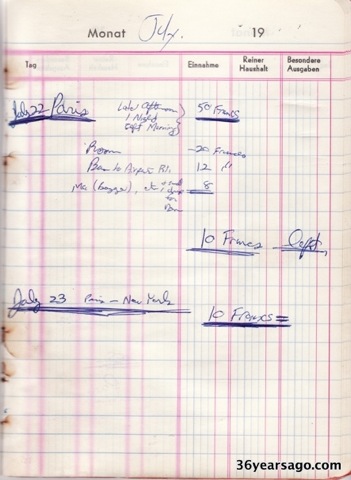 Monat July. 19
Tag Einnahme Reiner Haushalt Besondere Ausgaben
July 22 Paris Late Afternoon 50 Francs
1 Night
Left Morning
Room -20 Francs
to Airport 12 "
8
10 Francs Left,
July 23 Paris - New York
10 Francs =
36yearsago.com